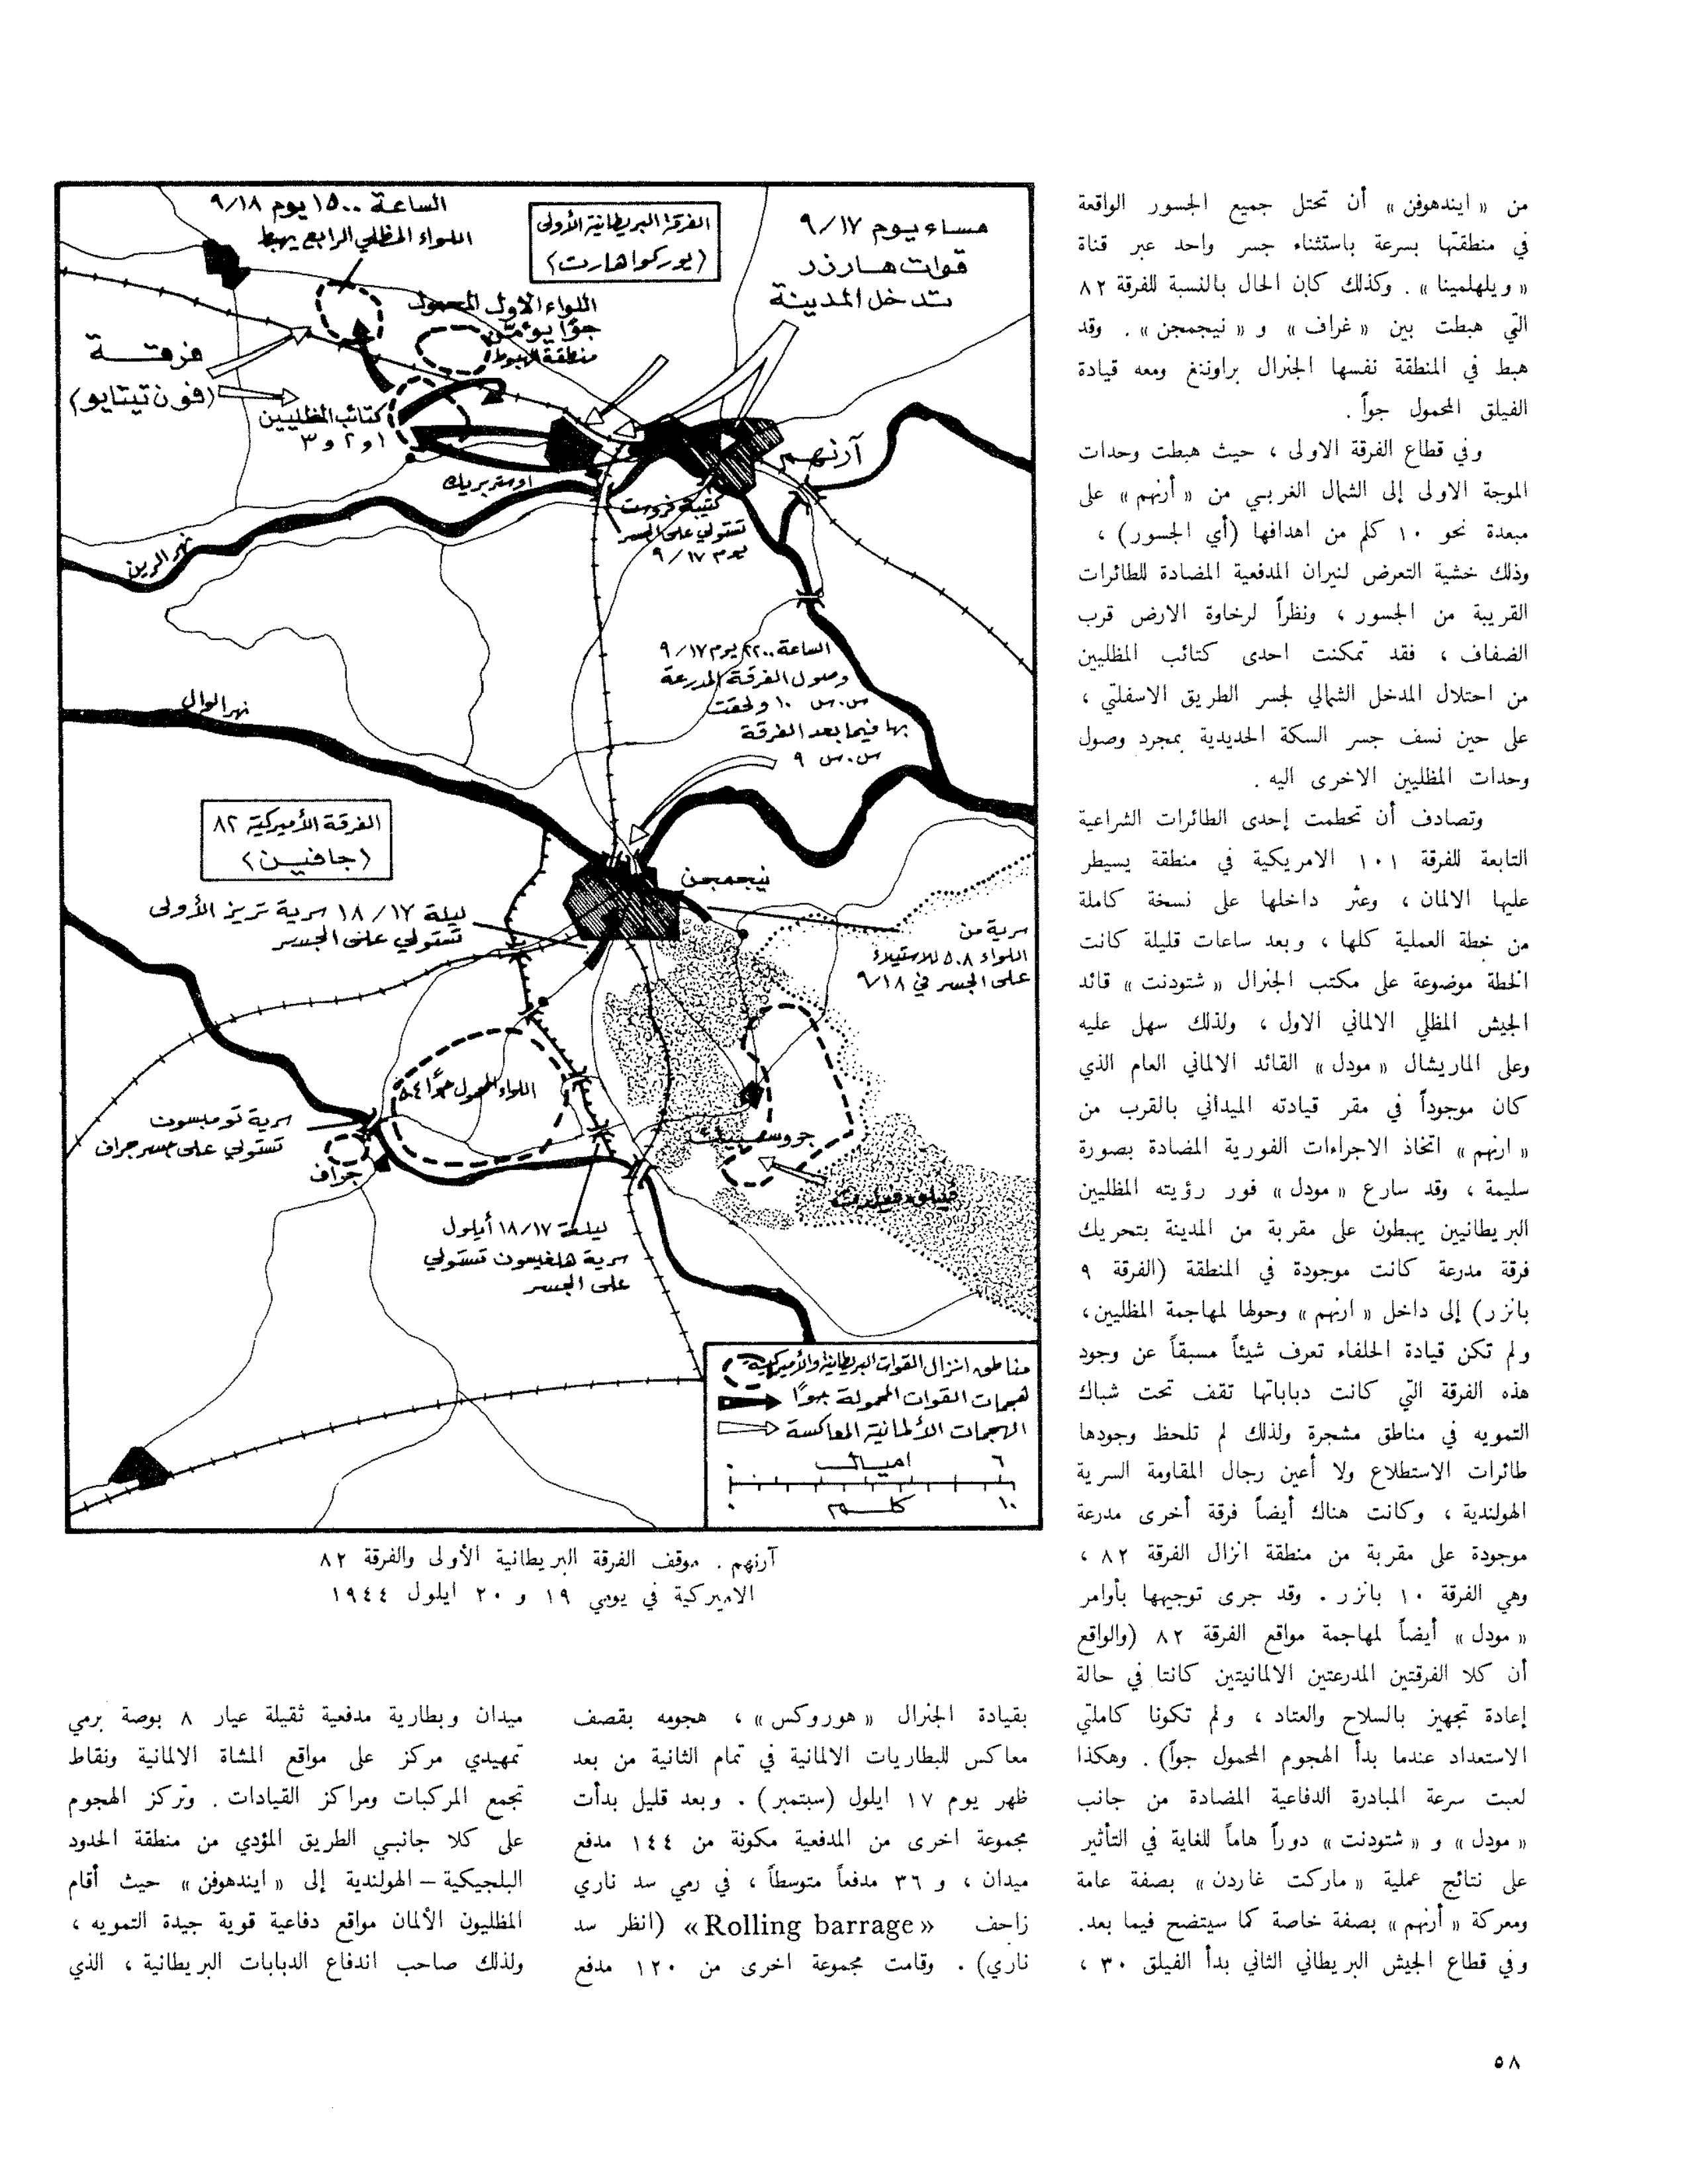 من « ايندهوفن » أن تحتل جميع الجسور الواقعة
في منطقتها بسرعة باستثناء جسر واحد عبر قناة
« ويلهلمينا » . وكذلك كان الحال بالنسبة للفرقة ٨٢
التي هبطت بين « غراف » و « نيجمجن » . وقد
هبط في المنطقة نفسها الجنرال براوننغ ومعه قيادة
الفيلق المحمول جواً .
وفي قطاع الفرقة الاولى ، حيث هبطت وحدات
الموجة الاولى إلى الشمال الغربي من « أرنهم » على
مبعدة نحو ١٠ كلم من اهدافها (أي الجسور) ،
وذلك خشية التعرض لنيران المدفعية المضادة للطائرات
القريبة من الجسور ، ونظراً لرخاوة الارض قرب
الضفاف ، فقد تمكنت احدى كتائب المظليين
من احتلال المدخل الشمالي لجسر الطريق الاسفلتي ،
على حين نسف جسر السكة الحديدية بمجرد وصول
وحدات المظليين الاخرى اليه .
وتصادف أن تحطمت إحدى الطائرات الشراعية
التابعة للفرقة ١٠١ الامريكية في منطقة يسيطر
عليها الالمان ، وعثر داخلها على نسخة كاملة
من خطة العملية كلها ، وبعد ساعات قليلة كانت
الخطة موضوعة على مكتب الجنرال « شتودنت » قائد
الجيش المظلي الالماني الاول ، ولذلك سهل عليه
وعلى الماريشال « مودل » القائد الالماني العام الذي
كان موجوداً في مقر قيادته الميداني بالقرب من
« ارنهم » اتخاذ الاجراءات الفورية المضادة بصورة
سليمة ، وقد سارع « مودل » فور رؤيته المظليين
البريطانيين يهبطون على مقربة من المدينة بتحريك
فرقة مدرعة كانت موجودة في المنطقة (الفرقة ٩
بانزر) إلى داخل « ارنهم » وحولها لمهاجمة المظليين،
ولم تكن قيادة الحلفاء تعرف شيئاً مسبقاً عن وجود
هذه الفرقة التي كانت دباباتها تقف تحت شباك
التمويه في مناطق مشجرة ولذلك لم تلحظ وجودها
طائرات الاستطلاع ولا أعين رجال المقاومة السرية
الهولندية ، وكانت هناك أيضاً فرقة أخرى مدرعة
موجودة على مقربة من منطقة انزال الفرقة ٨٢ ،
وهي الفرقة ١٠ بانزر . وقد جرى توجيهها بأوامر
« مودل » أيضاً لمهاجمة مواقع الفرقة ٨٢ (والواقع
أن كلا الفرقتين المدرعتين الالمانيتين كانتا في حالة
إعادة تجهيز بالسلاح والعتاد ، ولم تكونا كاملتي
الاستعداد عندما بدأ الهجوم المحمول جواً) . وهكذا
لعبت سرعة المبادرة الدفاعية المضادة من جانب
« مودل » و « شتودنت » دوراً هاماً للغاية في التأثير
على نتائج عملية « ماركت غاردن » بصفة عامة
ومعركة « أرنهم » بصفة خاصة كما سيتضح فيما بعد.
وفي قطاع الجيش البريطاني الثاني بدأ الفيلق ٣٠ ،
الساعة ١٥٠٠ يوم ٩/١٨
اللواء المظلي الرابع يهبط
الفرقة البريطانية الأولى
(يوركواهارت)
مساء يوم ٩/١٧
قوات هارزر
تدخل المدينة
اللواء الاول المحمول
جوًا يؤمّن
منطقة الهبوط
فرقة
(فون تيتايو)
كتائب المظليين
١ و ٢ و ٣
آرنهم
اوستربريك
كتيبة فروست
تستولي على الجسر
يوم ٩/١٧
نهر الرين
الساعة ٢٢٠٠ يوم ٩/١٧
وصول الفرقة المدرعة
س.س ١٠ ولحقت
بها فيما بعد الفرقة
س.س ٩
نهر الوال
الفرقة الأميركية ٨٢
(جافين)
نيجمجن
ليلة ١٧/١٨ سرية تريز الأولى
تستولي على الجسر
سرية من
اللواء ٥٠٨ للاستيلاء
على الجسر في ٩/١٨
اللواء المحمول جوًا ٥٠٤
سرية تومبسون
تستولي على جسر جراف
جراف
جروسبيك
ليلة ١٨/١٧ أيلول
سرية هلفيسون تستولي
على الجسر
مناطق انزال القوات البريطانية والأميركية
هجمات القوات المحمولة جوًا
الهجمات الألمانية المعاكسة
٠ اميال ٦
٠ كلم ١٠
آرنهم . موقف الفرقة البريطانية الأولى والفرقة ٨٢
الاميركية في يومي ١٩ و ٢٠ ايلول ١٩٤٤
بقيادة الجنرال « هوروكس » ، هجومه بقصف
معاكس للبطاريات الالمانية في تمام الثانية من بعد
ظهر يوم ١٧ ايلول (سبتمبر) . وبعد قليل بدأت
مجموعة اخرى من المدفعية مكونة من ١٤٤ مدفع
ميدان ، و ٣٦ مدفعاً متوسطاً ، في رمي سد ناري
زاحف «Rolling barrage» (انظر سد
ناري) . وقامت مجموعة اخرى من ١٢٠ مدفع
ميدان وبطارية مدفعية ثقيلة عيار ٨ بوصة برمي
تمهيدي مركز على مواقع المشاة الالمانية ونقاط
تجمع المركبات ومراكز القيادات . وتركز الهجوم
على كلا جانبي الطريق المؤدي من منطقة الحدود
البلجيكية – الهولندية إلى « ايندهوفن » حيث أقام
المظليون الألمان مواقع دفاعية قوية جيدة التمويه ،
ولذلك صاحب اندفاع الدبابات البريطانية ، الذي
٥٨